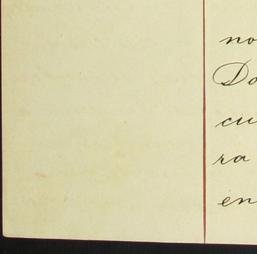 no
Do
cu
ra
en